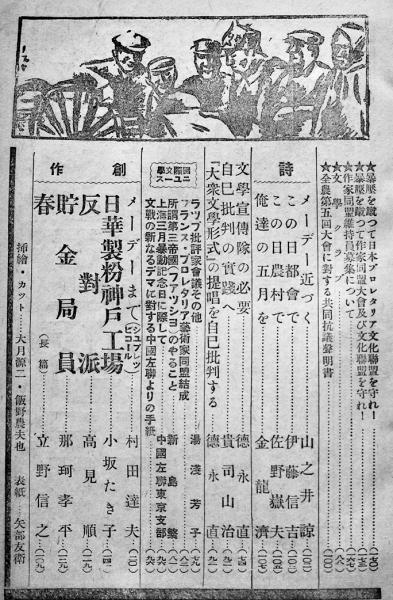 ★暴壓を蹴つて日本プロレタリア文化聯盟を守れ!
★暴壓を蹴つて作家同盟大會及び文化聯盟を守れ!
★作家同盟維持員募集について
★文學クラブ
★全農第五回大會に對する共同抗議聲明書
詩
メーデー近づく 山之井諒
この日都會で 伊藤信吉
この日農村で 佐野嶽夫
俺達の五月を 金龍濟
文學宣傳隊の必要 德永直
自己批判の實踐へ 貴司山治
「大衆文學形式」の提唱を自己批判する 德永直
國際文學ニュース
ラップ批評家會議その他 湯淺芳子
フランス・プロレタリア藝術家同盟結成
所謂第三帝國(ファッシヨ)のやること 新島繁
上海三月暴動記念日に際して 中國左聯東京支部
文戰の新なるデマに對する中國左聯よりの手紙
創作
メーデーまで(シュプレッヒコール) 村田達夫
日華製粉神戸工場 小坂たき子
反對派 高見順
貯金局員 那珂孝平
春(長篇) 立野信之
挿繪・カット 大月源二・飯野農夫也 表紙 矢部友衛